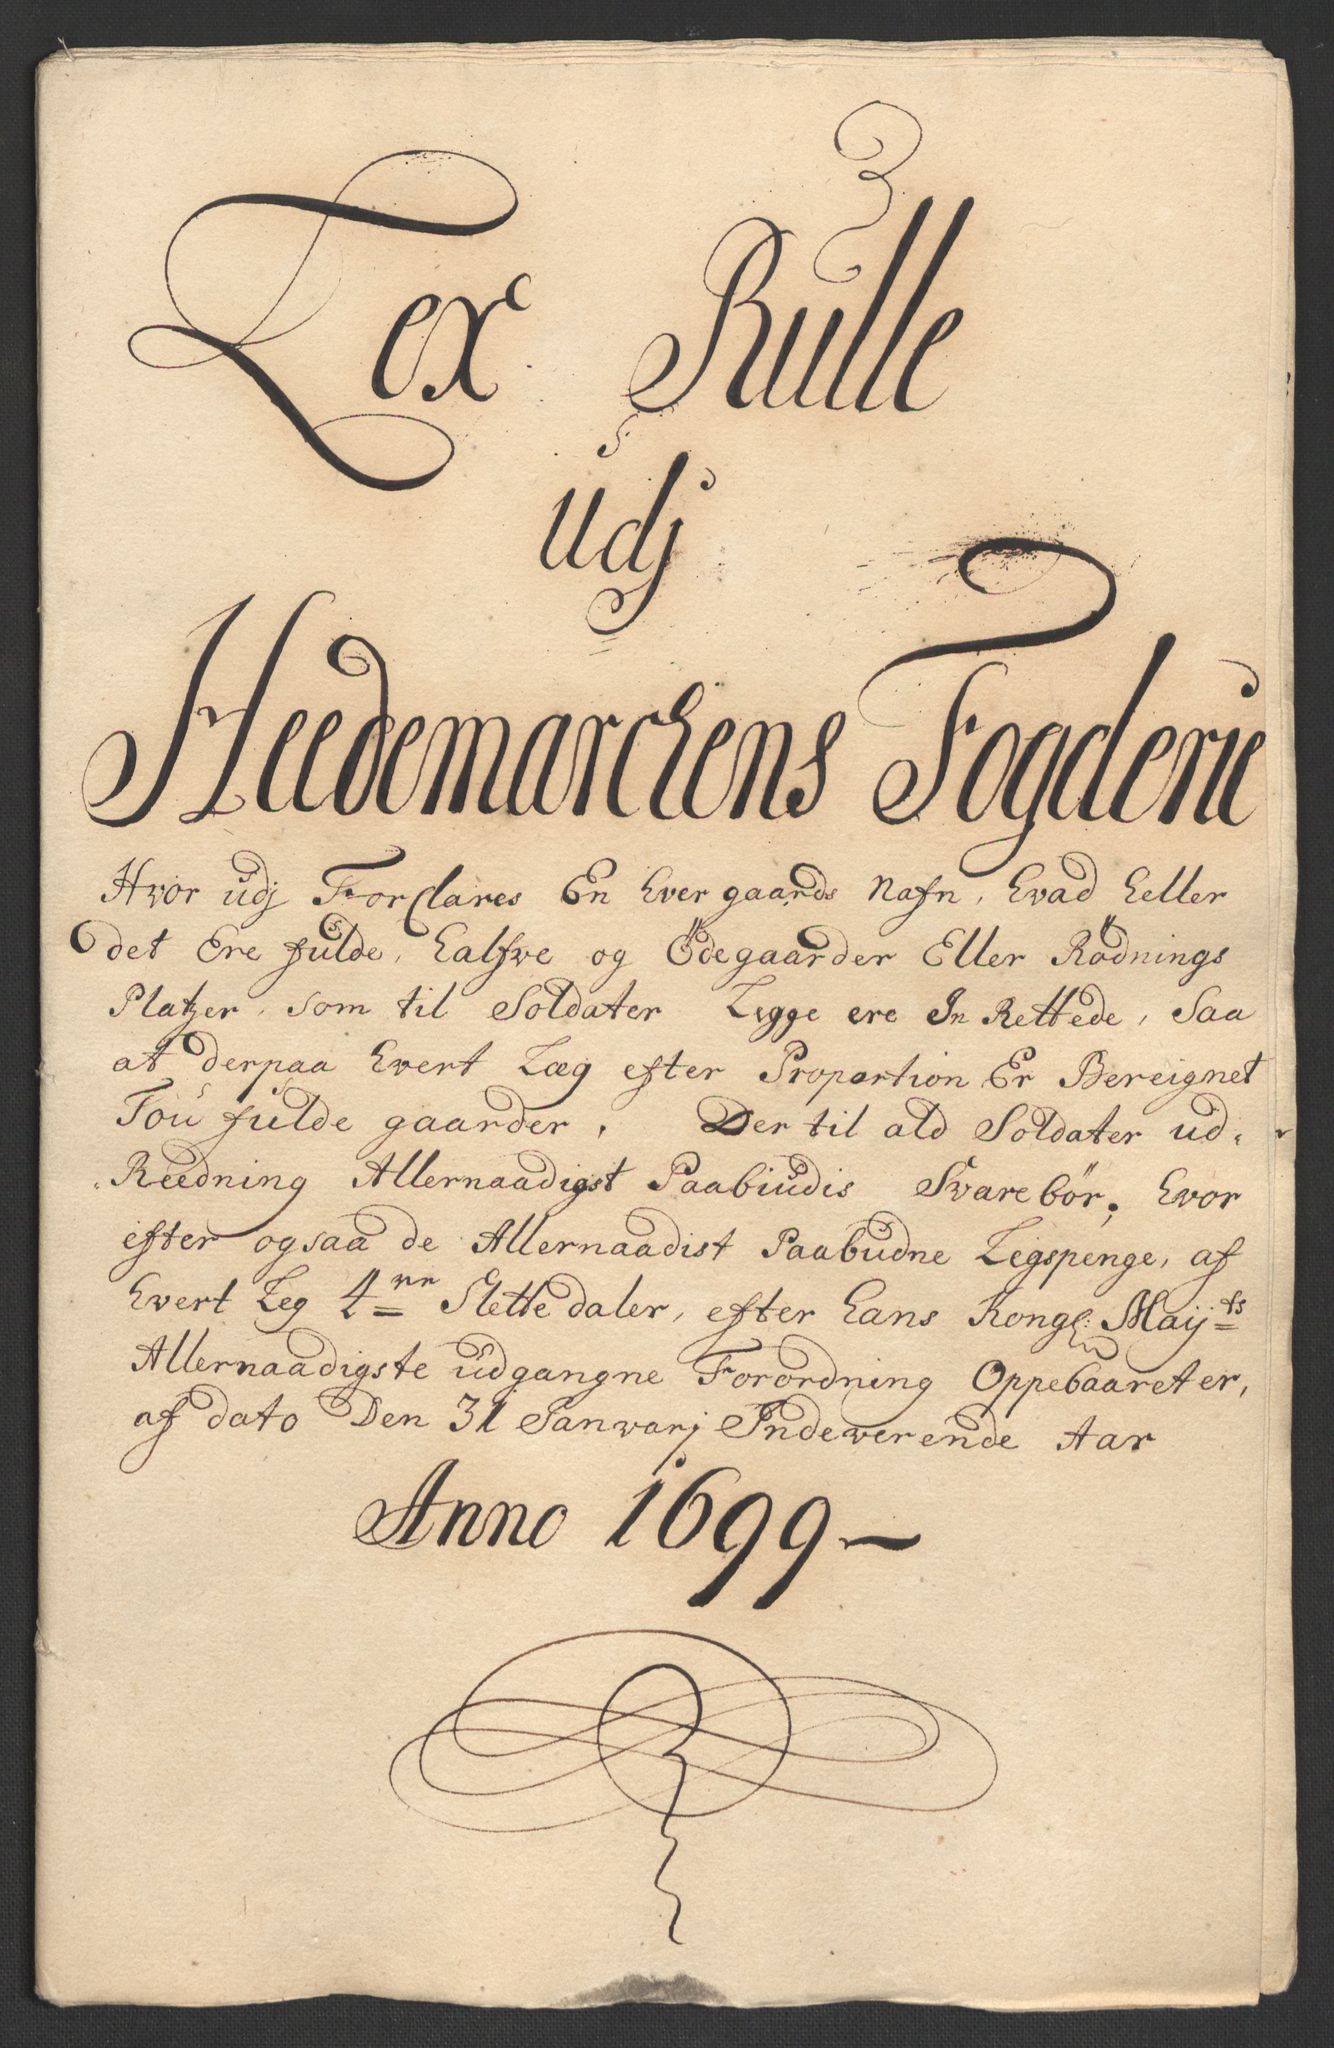 Lex Rulle
udj
Heedemarckens Fogderie
Hvor udj Forclares En hver gaards Nafn, hvad heller
det Ere fulde, halfve og Ödegaarder Eller Rödnings
Platzer, som til Soldater Legge ere InRettede, Saa
at derpaa hvert Læg efter Proportion Er Bereignet
Tou fulde gaarder, Der til ald Soldater ud-
Reedning Allernaadigst Paabiudis Svarebör, hvor
efter ogsaa de Allernaadist Paabudne Legspenge, af
hvert Leg 4re Slette daler, efter hans Kongl: Maijts
Allernaadigste udgangne Forordning Oppebaaret er,
af dato Den 31 Janvarj Indeverende Aar
Anno 1699